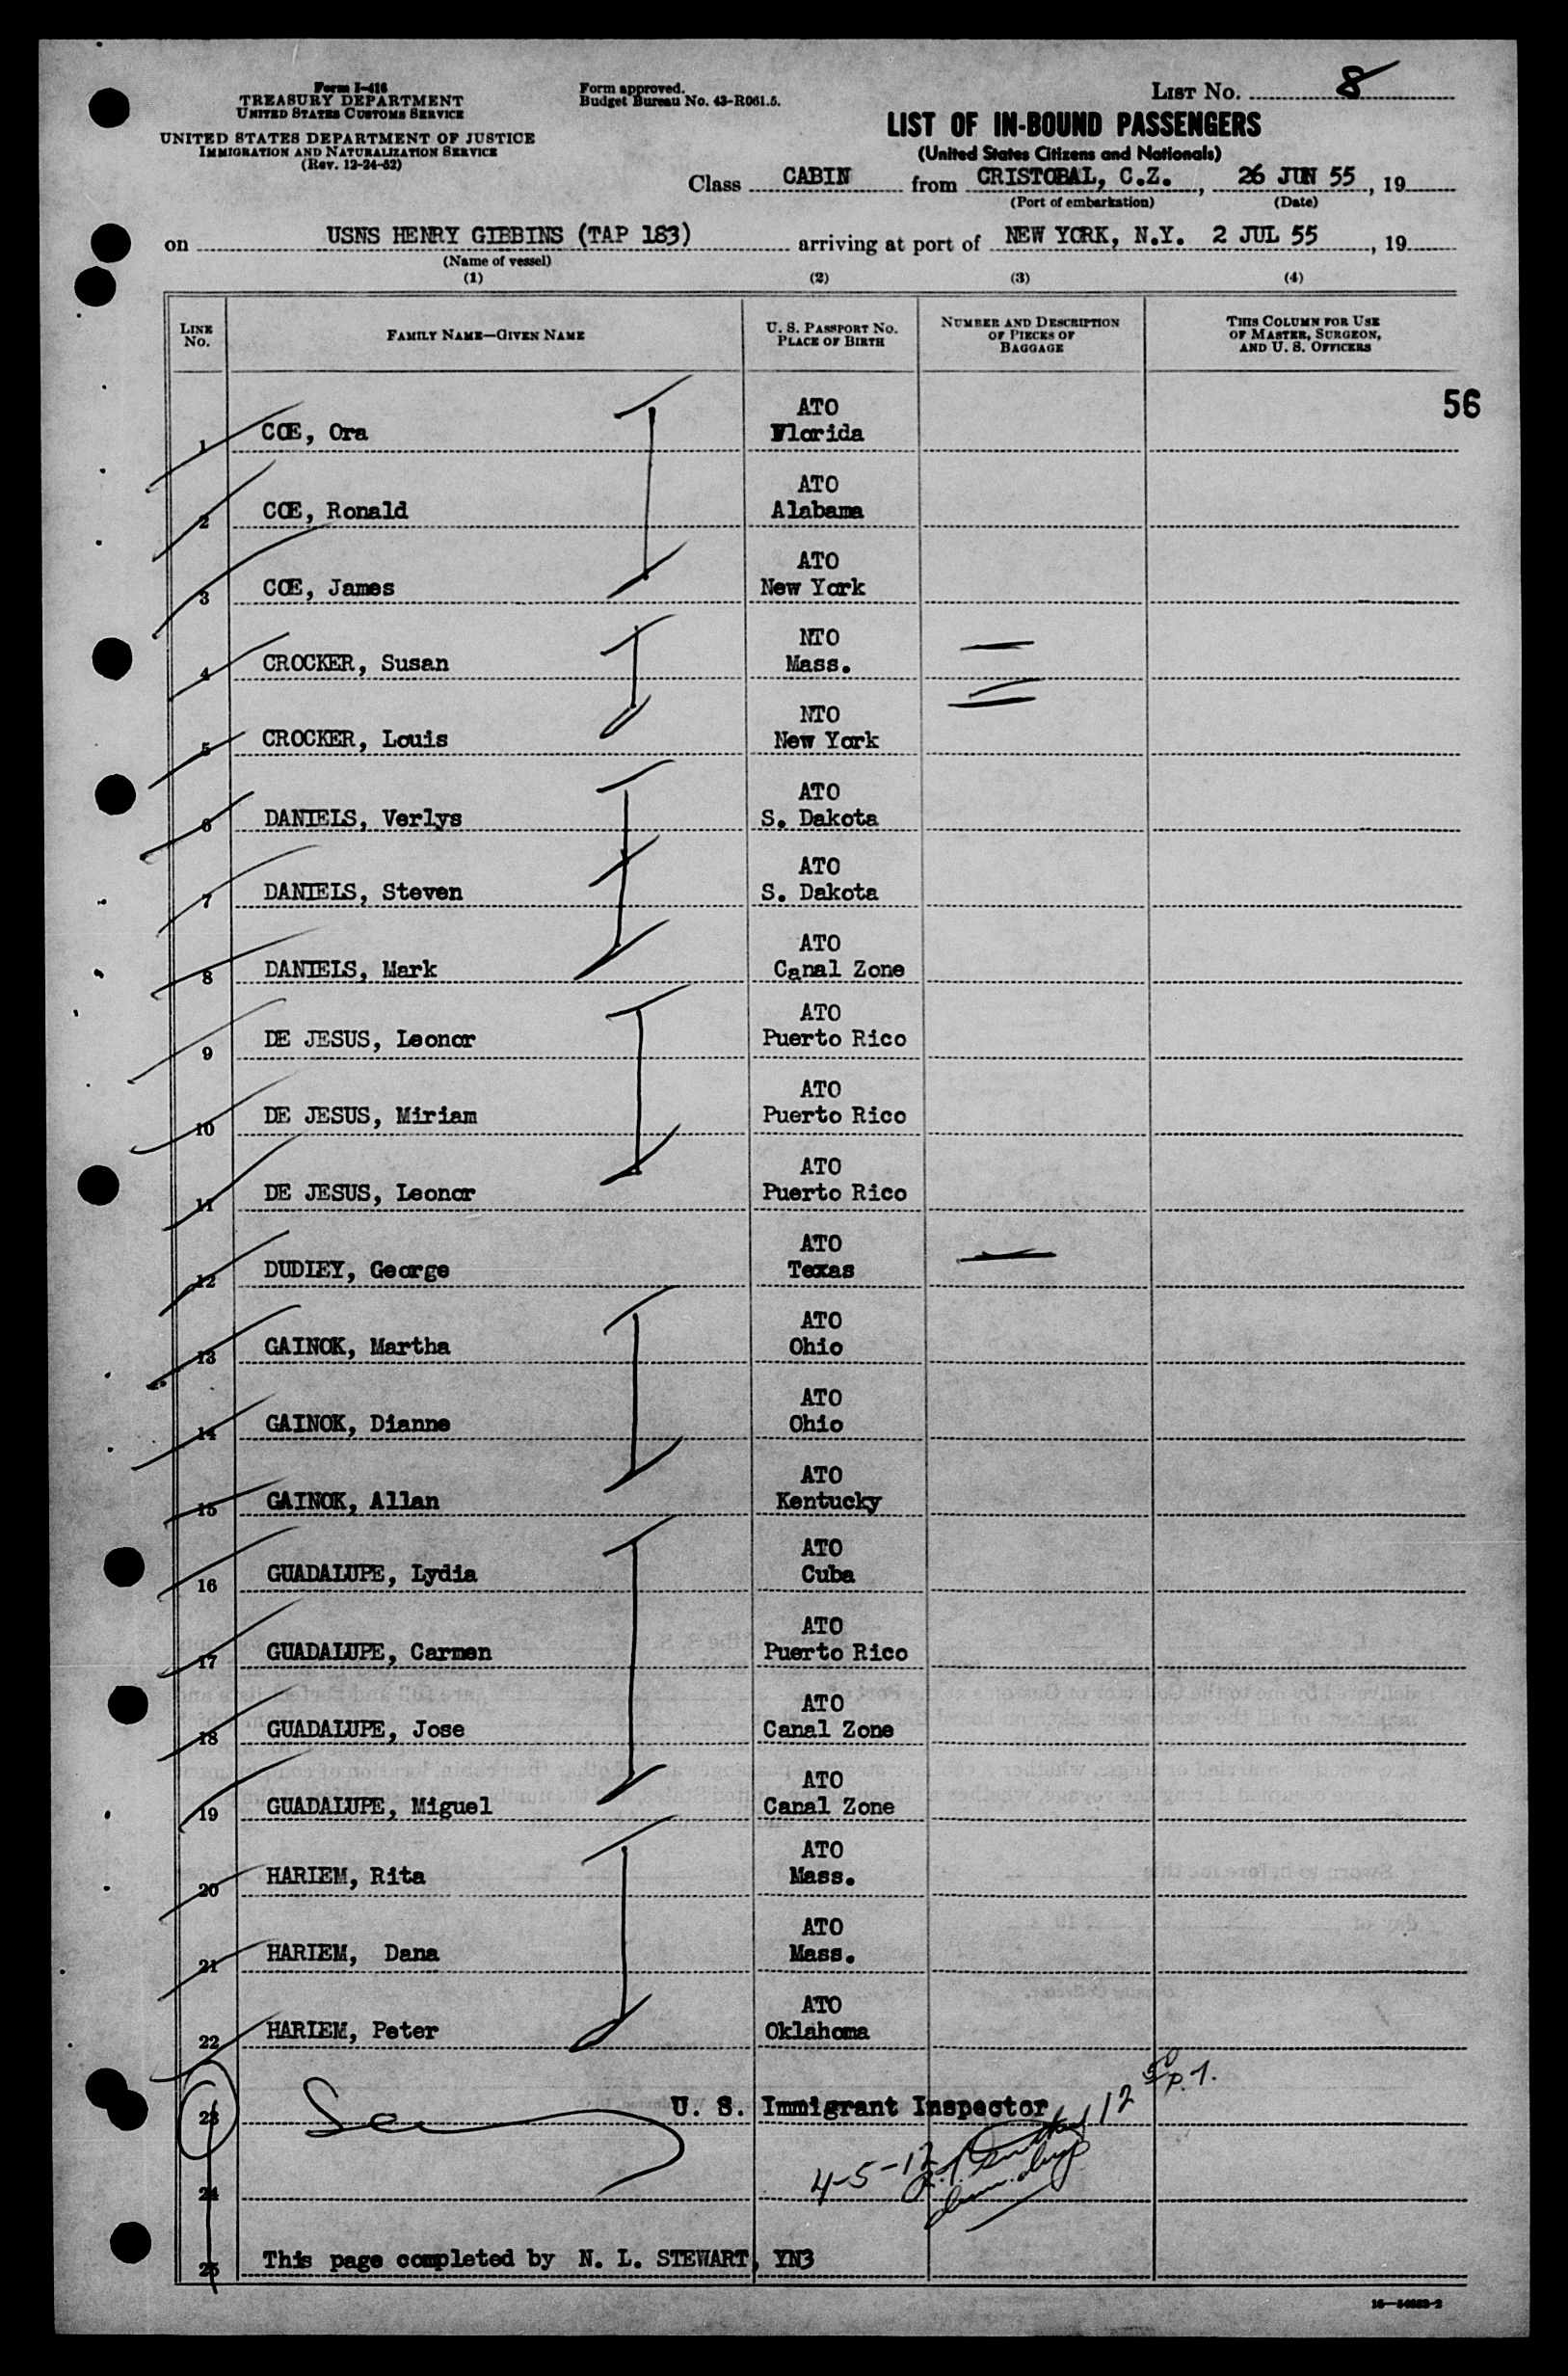 Form I-416
TREASURY DEPARTMENT
UNITED STATES CUSTOMS SERVICE
UNITED STATES DEPARTMENT OF JUSTICE
IMMIGRATION AND NATURALIZATION SERVICE
(Rev. 12-24-52)
Form approved.
Budget Bureau No. 43-R061.5.
LIST No. 8
LIST OF IN-BOUND PASSENGERS
(United States Citizens and Nationals)
Class CABIN from CRISTOBAL, C.Z., 26 JUN 55, 19
(Port of embarkation) (Date)
on USNS HENRY GIBBINS (TAP 183) arriving at port of NEW YORK, N.Y. 2 JUL 55, 19
(Name of vessel)
(1) (2) (3) (4)
LINE No. FAMILY NAME—GIVEN NAME U. S. PASSPORT No. PLACE OF BIRTH NUMBER AND DESCRIPTION OF PIECES OF BAGGAGE THIS COLUMN FOR USE OF MASTER, SURGEON, AND U. S. OFFICERS
56
ATO
1 COE, Ora Florida
ATO
2 COE, Ronald Alabama
ATO
3 COE, James New York
NTO
4 CROCKER, Susan Mass.
NTO
5 CROCKER, Louis New York
ATO
6 DANIELS, Verlys S. Dakota
ATO
7 DANIELS, Steven S. Dakota
ATO
8 DANIELS, Mark Canal Zone
ATO
9 DE JESUS, Leonor Puerto Rico
ATO
10 DE JESUS, Miriam Puerto Rico
ATO
11 DE JESUS, Leonor Puerto Rico
ATO
12 DUDLEY, George Texas
ATO
13 GAINOK, Martha Ohio
ATO
14 GAINOK, Dianne Ohio
ATO
15 GAINOK, Allan Kentucky
ATO
16 GUADALUPE, Lydia Cuba
ATO
17 GUADALUPE, Carmen Puerto Rico
ATO
18 GUADALUPE, Jose Canal Zone
ATO
19 GUADALUPE, Miguel Canal Zone
ATO
20 HARLEM, Rita Mass.
ATO
21 HARLEM, Dana Mass.
ATO
22 HARLEM, Peter Oklahoma
23 U. S. Immigrant Inspector
24 4-5-12
25 This page completed by N. L. STEWART, YN3